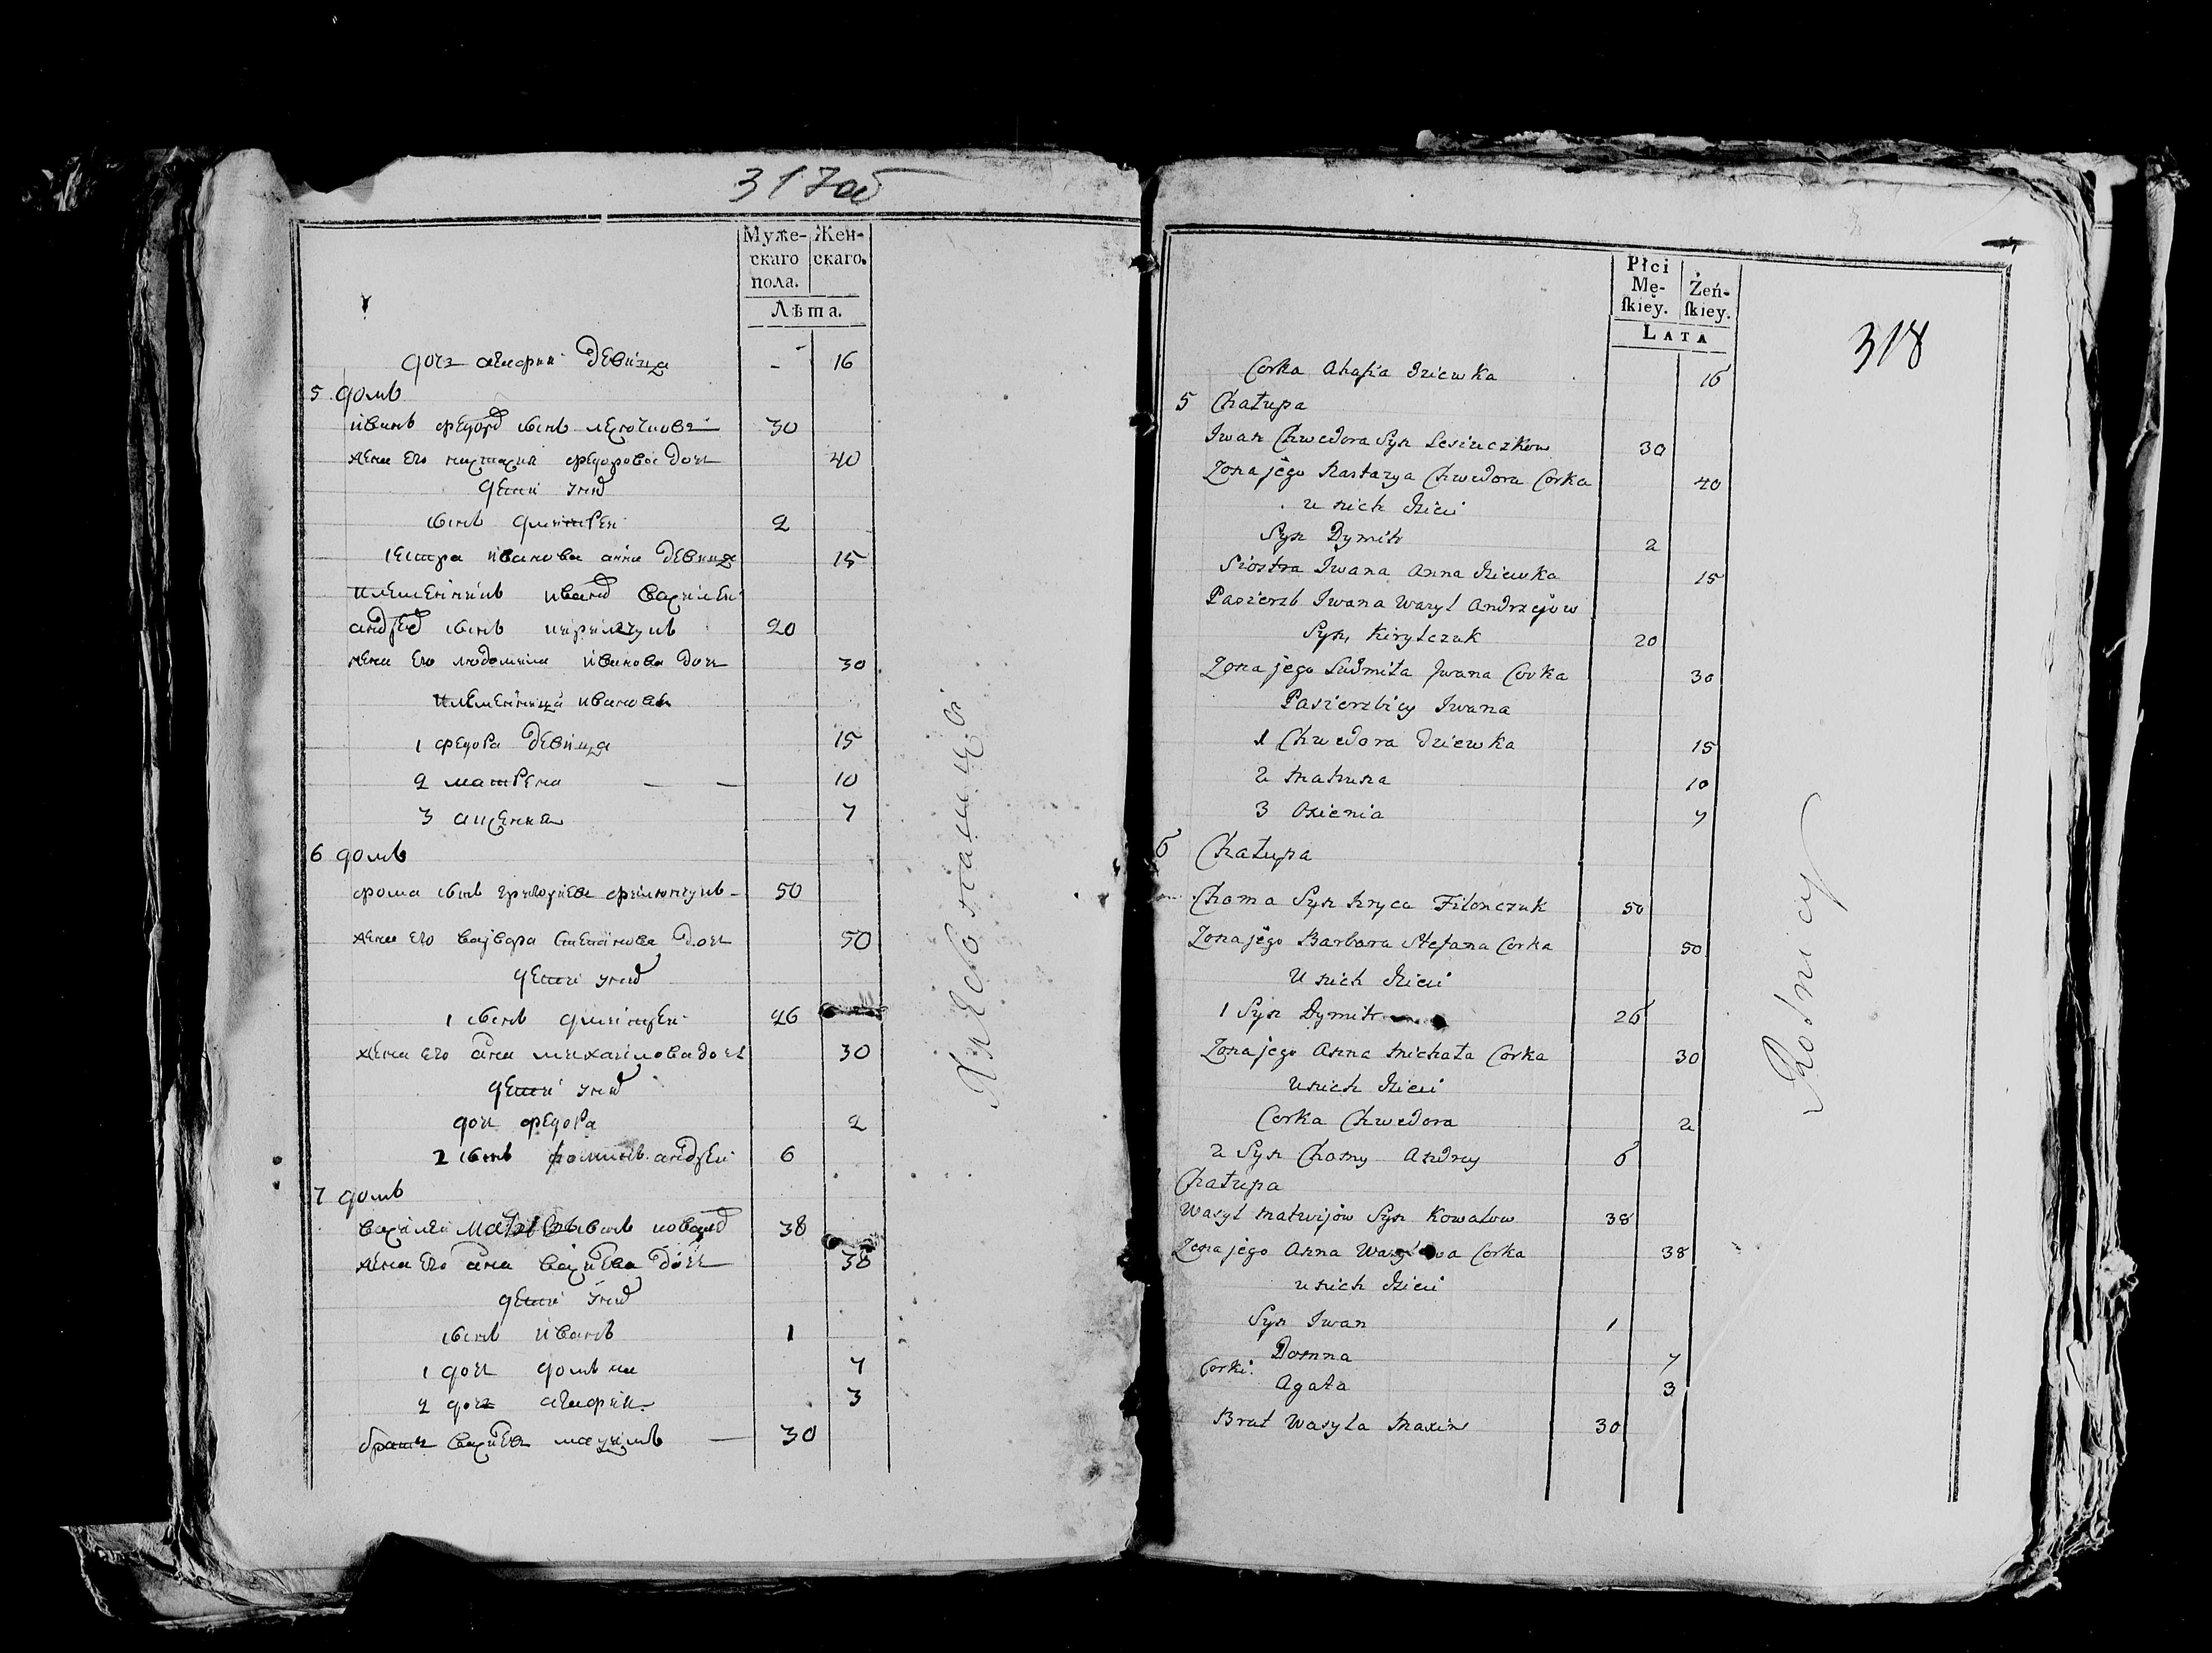 317об
Муже-
скаго
пола.
Жен-
скаго.
Лѣта.
дочь агафия девица - 16
5 домъ
иванъ федоров сынъ 30
жена его настасия федорова дочь 40
дети у них
сынъ дмитрей 2
сестра иванова анна девица 15
племенникъ иванов василей
андреев сынъ кирилчукъ 20
жена его людомила иванова дочь 30
племенница иванова
1 федора девица 15
2 матрена — — 10
3 аксения 7
6 домъ
фома сынъ григориев филончукъ - 50
жена его варвара степанова дочь 50
дети у них
1 сынъ дмитрей 26
жена его анна михаилова дочь 30
дети у них
дочь федора 2
2 сынъ фоминъ андрей 6
7 домъ
василей сынъ ковалев 38
жена его анна васильева дочь 38
дети у них
сынъ иванъ 1
1 дочь домъна 7
2 дочь агафия 3
братъ васильев максимъ — 30
Хлебопашцы
Płci
Mę-
skiey.
Żeń-
skiey.
LATA
318
Corka Ahafia Dziewka 16
5 Chałupa
Iwan Chwedora Syn Lesiuczkow 30
Zona jego Nastazya Chwedora Corka 40
u nich dzieci
Syn Dymitr 2
Siostra Iwana Anna dziewka 15
Pasierzb Iwana Wasyl Andrzejow
Syn, Kirylczuk 20
Zona jego Ludmiła Iwana Corka 30
Pasierzbicy Iwana
1 Chwedora Dziewka 15
2 Matruna 10
3 Oxienia 7
6 Chałupa
Choma Syn Hryca Filonczuk 50
Zona jego Barbara Stefana Corka 50
U nich dzieci
1 Syn Dymitr 26
Zona jego Anna Michała Corka 30
U nich dzieci
Corka Chwedora 2
2 Syn Chomy Andrey 6
Chałupa
Wasyl Matwijów Syn Kowalow 38
Zona jego Anna Wasylowa Corka 38
u nich dzieci
Syn Iwan 1
Corki. Domna 7
Agata 3
Brat Wasyla Maxim 30
Rolnicy